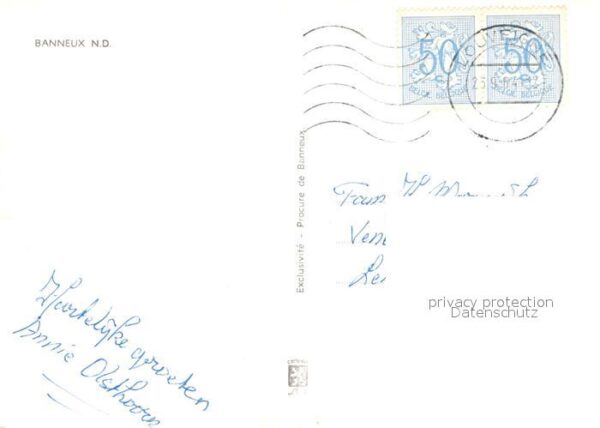 BANNEUX N.D.
50 50
BELGIE BELGIQUE BELGIE BELGIQUE
LOUVEIGNÉ
Exclusivité - Procure de Banneux
Fam
privacy protection
Datenschutz
Hartelijke groeten
Annie Olsthoorn